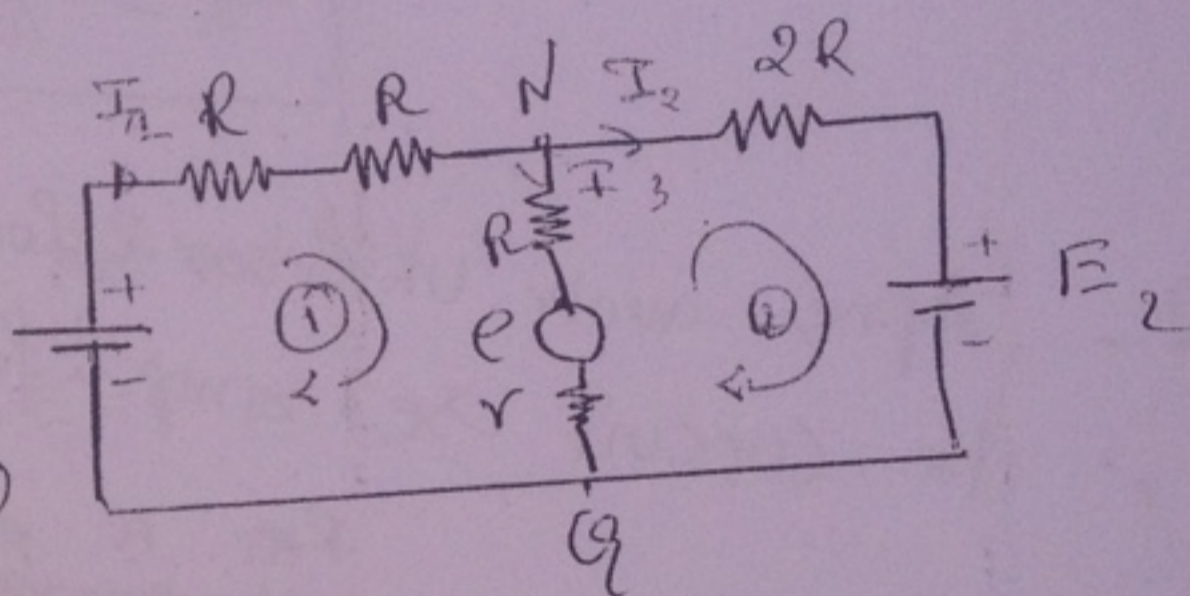 I1 R R N I2 2R
I3
R
+ + E2
1 e 2
r
- -
G